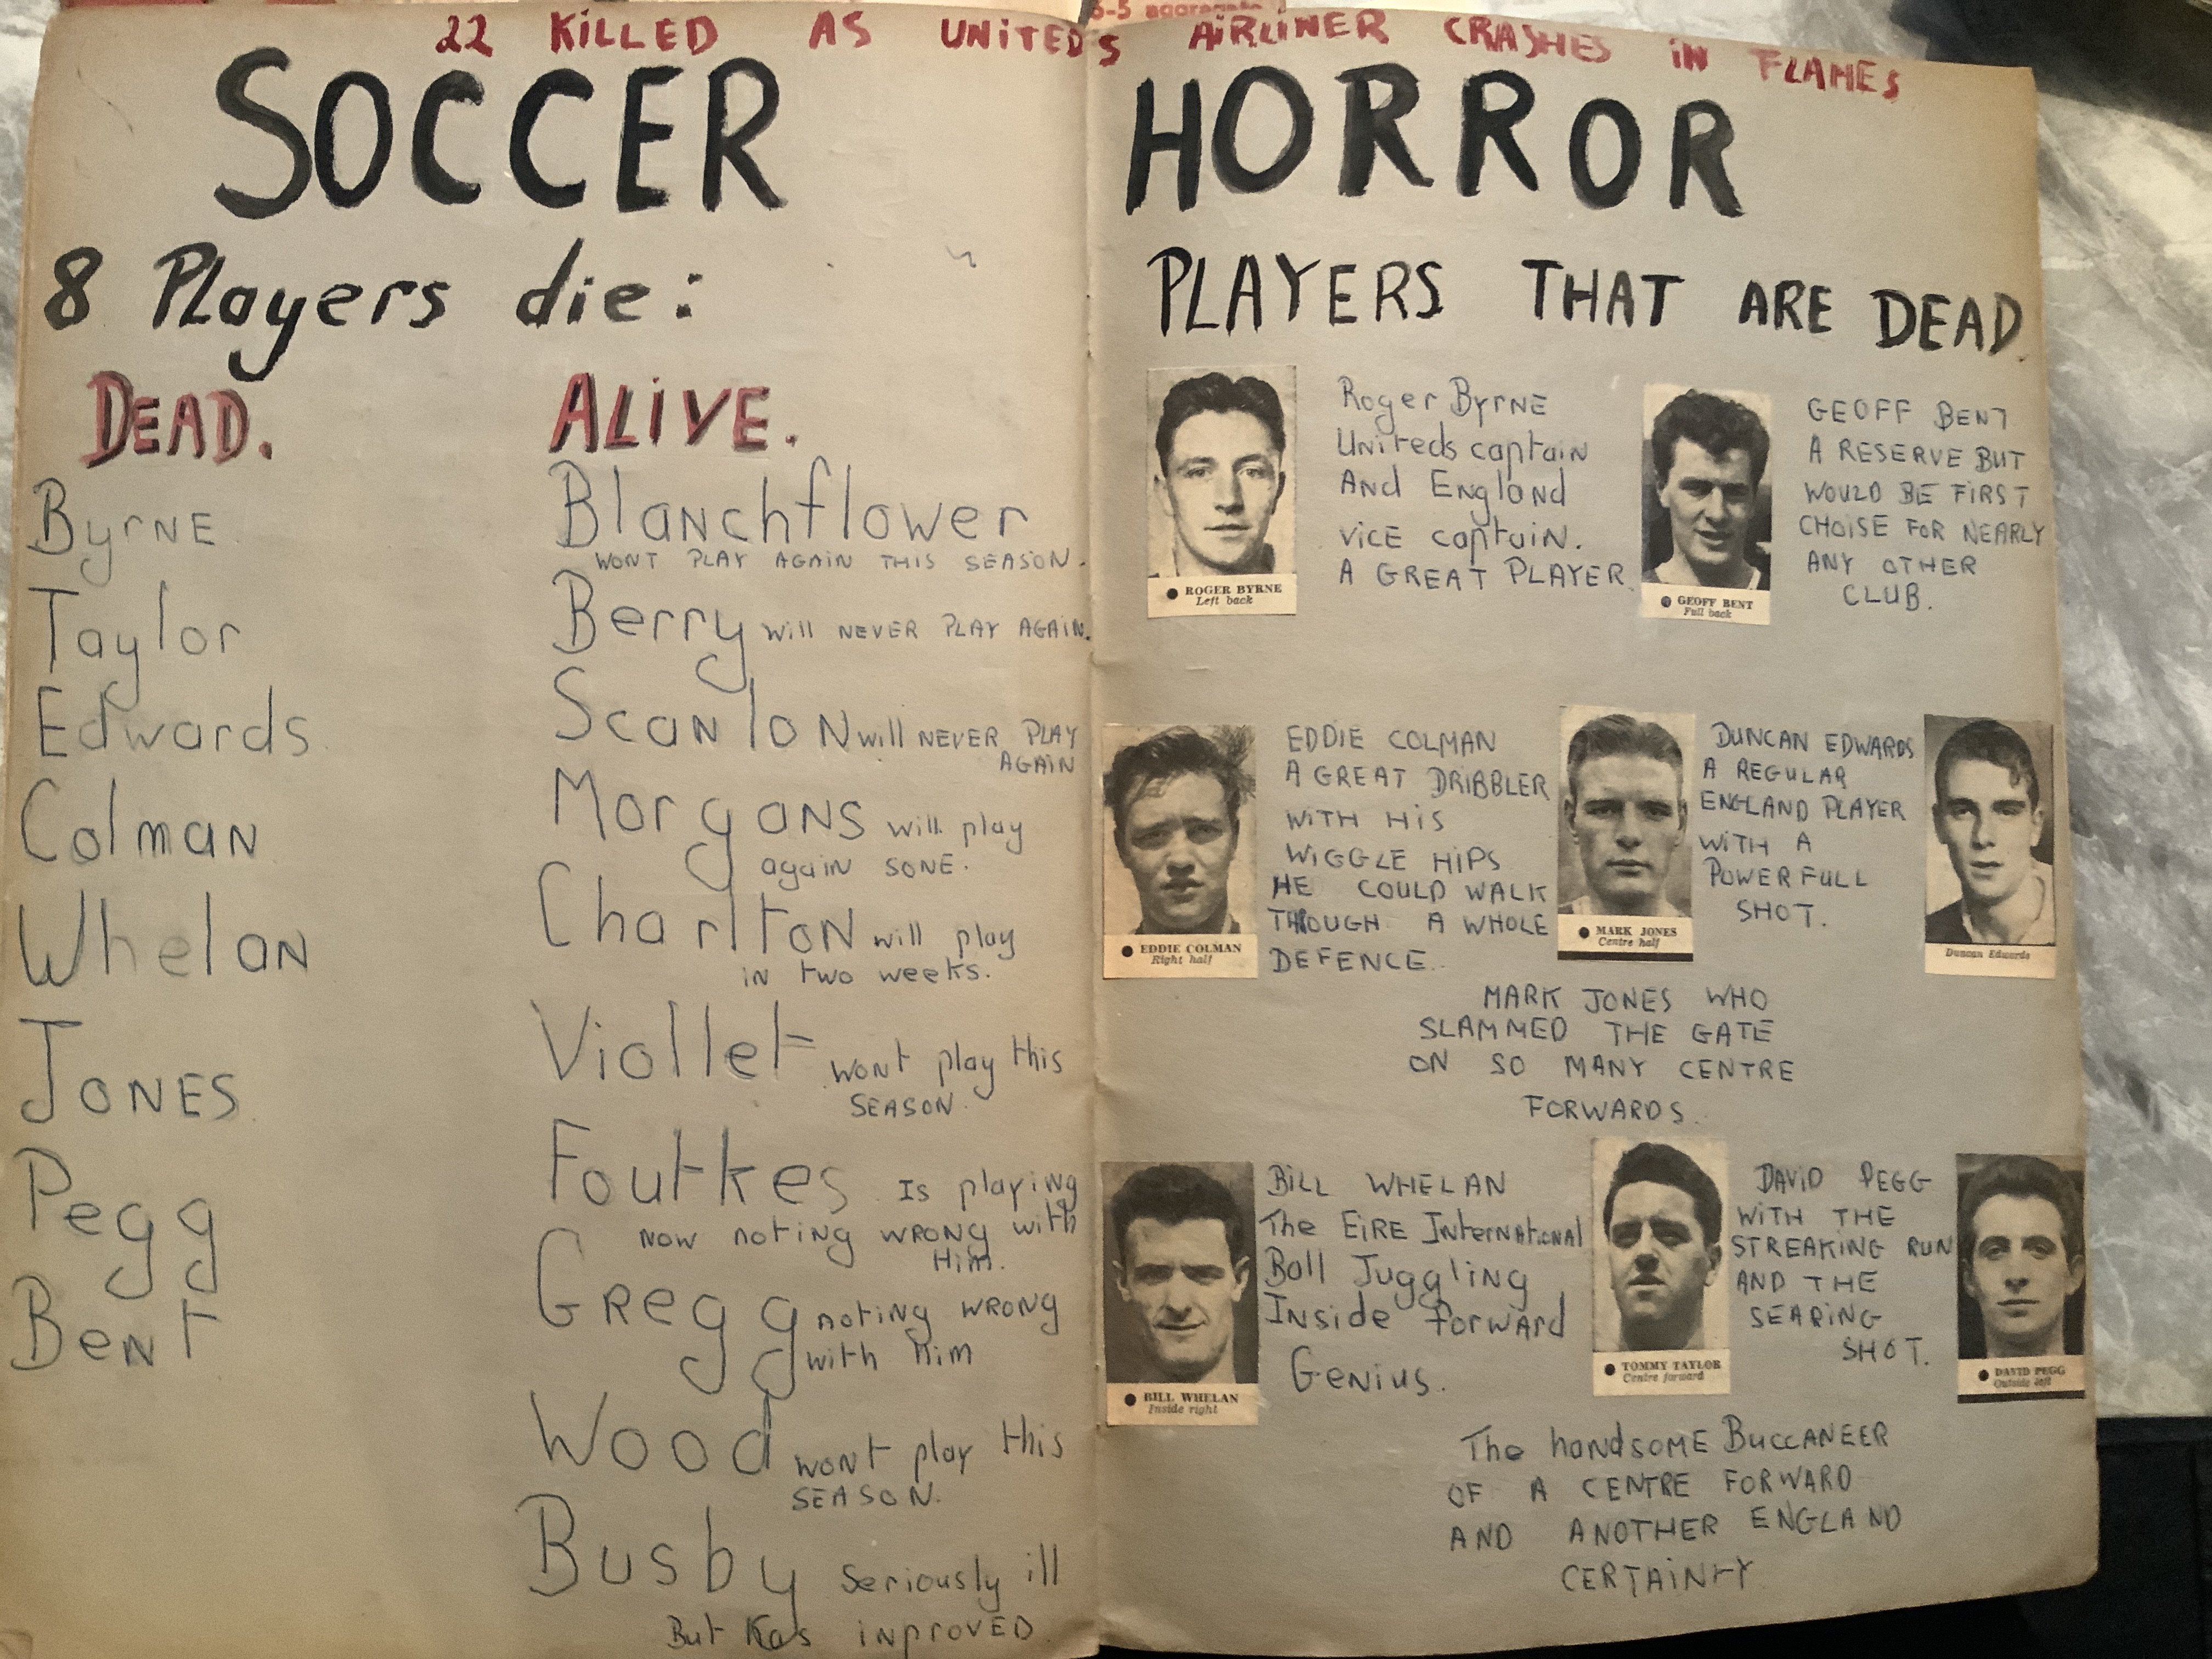 6-5 aggregate
22 KILLED AS UNITED'S AIRLINER CRASHES IN FLAMES
SOCCER HORROR
8 Players die:
DEAD.
Byrne
Taylor
Edwards
Colman
Whelan
Jones
Pegg
Bent
ALIVE.
Blanchflower
WONT PLAY AGAIN THIS SEASON.
Berry will NEVER PLAY AGAIN.
Scanlon will NEVER PLAY
AGAIN
Morgans will play
again SONE.
Charlton will play
in two weeks.
Viollet wont play this
SEASON.
Foulkes Is playing
now noting wrong with
Him.
Gregg noting wrong
with him
Wood wont play this
SEASON.
Busby seriously ill
But Has inproved
PLAYERS THAT ARE DEAD.
● ROGER BYRNE
Left back
Roger Byrne
Uniteds captain
And England
vice captain.
A GREAT PLAYER
● GEOFF BENT
Full back
GEOFF BENT
A RESERVE BUT
WOULD BE FIRST
CHOISE FOR NEARLY
ANY OTHER
CLUB.
● EDDIE COLMAN
Right half
EDDIE COLMAN
A GREAT DRIBBLER
WITH HIS
WIGGLE HIPS
HE COULD WALK
THOUGH A WHOLE
DEFENCE.
● MARK JONES
Centre half
DUNCAN EDWARDS
A REGULAR
ENGLAND PLAYER
WITH A
POWERFULL
SHOT.
Duncan Edwards
MARK JONES WHO
SLAMMED THE GATE
ON SO MANY CENTRE
FORWARDS.
● BILL WHELAN
Inside right
BILL WHELAN
The EIRE International
Ball Juggling
Inside forward
Genius.
● TOMMY TAYLOR
Centre forward
DAVID PEGG
WITH THE
STREAKING RUN
AND THE
SEARING
SHOT.
● DAVID PEGG
Outside left
The handsome Buccaneer
OF A CENTRE FORWARD
AND ANOTHER ENGLAND
CERTAINTY